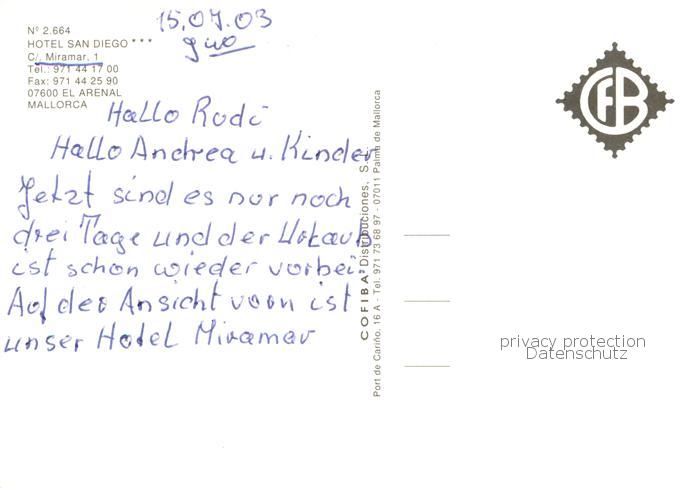 Nº 2.664
HOTEL SAN DIEGO ***
C/. Miramar, 1
Tel.: 971 44 17 00
Fax: 971 44 25 90
07600 EL ARENAL
MALLORCA
15.07.03
Hallo Rudi
Hallo Andrea u. Kinder
Jetzt sind es nur noch
drei Tage und der Urlaub
ist schon wieder vorbei.
Auf der Ansicht vorn ist
unser Hotel Miramar
COFIBA Distribuciones, S.
Port de Cariño, 16 A - Tel. 971 73 68 97 - 07011 Palma de Mallorca
CFB
privacy protection
Datenschutz